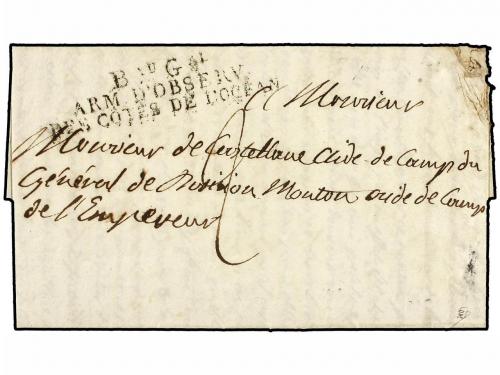 Bau Gal
ARM. D'OBSERV.
DES COTES DE L'OCEAN
A Monsieur
Monsieur de Castellane aide-de-Camp du
Général de Division Mouton aide de Camp
de l'Empereur